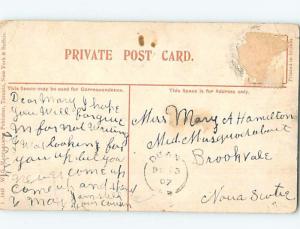 PRIVATE POST CARD.
This Space may be used for Correspondence.
This Space is for Address only.
Dear Mary I hope
you Will forgive
Im for Not Writing
I Was looking for
you up but you
never come up
come up and
& May
your cousin
Miss Mary A Hamilton
Med. Musquodoboit
Brookvale
Nova Scotia
DEAN
07